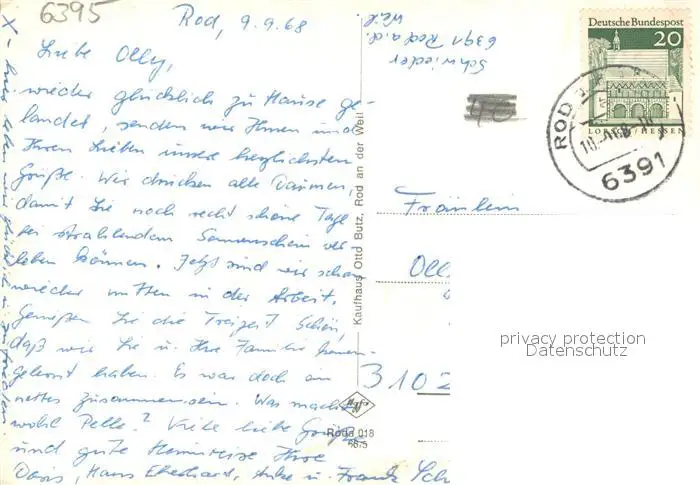 6395
Rod, 9.9.68
Liebe Olly,
wieder glücklich zu Hause ge-
landet, senden wir Ihnen und
Ihren Lieben unsere herzlichsten
Grüße. Wir drücken alle Daumen,
damit Sie noch recht schöne Tage
bei strahlendem Sonnenschein ver
leben können. Jetzt sind wir schon
wieder mitten in der Arbeit.
Genießen Sie die Freizeit schön,
daß wir Sie u. Ihre Familie kennen-
gelernt haben. Es war doch ein
nettes zusammensein. Was macht
wohl Pelle? Viele liebe Grüße
und gute Heimreise Ihre
Doris, Hans Eberhard, u. Frank Sch
X-
Schwieder
6391 Rod a.d.
Weil
Kaufhaus Otto Butz, Rod an der Weil
Agfa
Roda 018
Deutsche Bundespost
20
LORSCH/HESSEN
ROD
6391
Fräulein
Oll
3102
privacy protection
Datenschutz